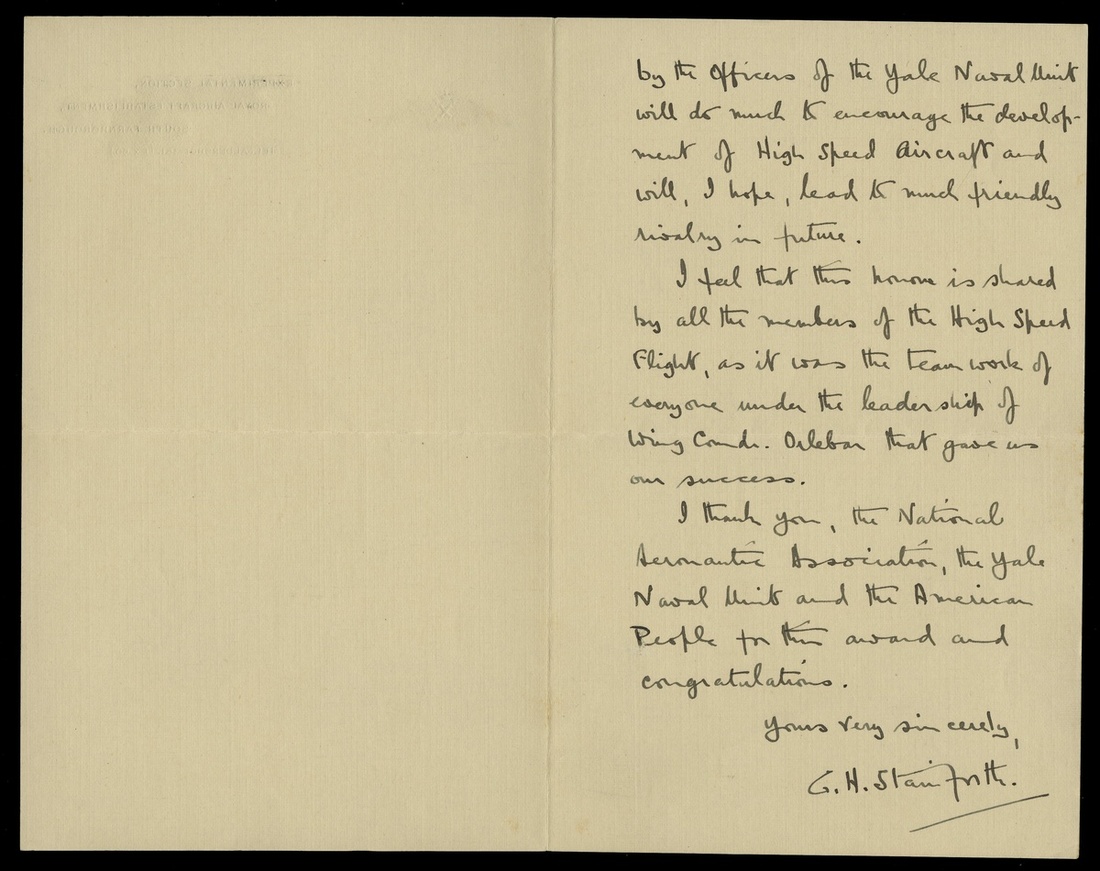 EXPERIMENTAL SECTION,
ROYAL AIRCRAFT ESTABLISHMENT,
SOUTH FARNBOROUGH,
by the Officers of the Yale Naval Unit
will do much to encourage the develop-
ment of High Speed Aircraft and
will, I hope, lead to much friendly
rivalry in future.
I feel that this honour is shared
by all the members of the High Speed
Flight, as it was the team work of
everyone under the leadership of
Wing Comdr. Orlebar that gave us
our success.
I thank you, the National
Aeronautic Association, the Yale
Naval Unit and the American
People for this award and
congratulations.
Yours very sincerely,
G. H. Stainforth.